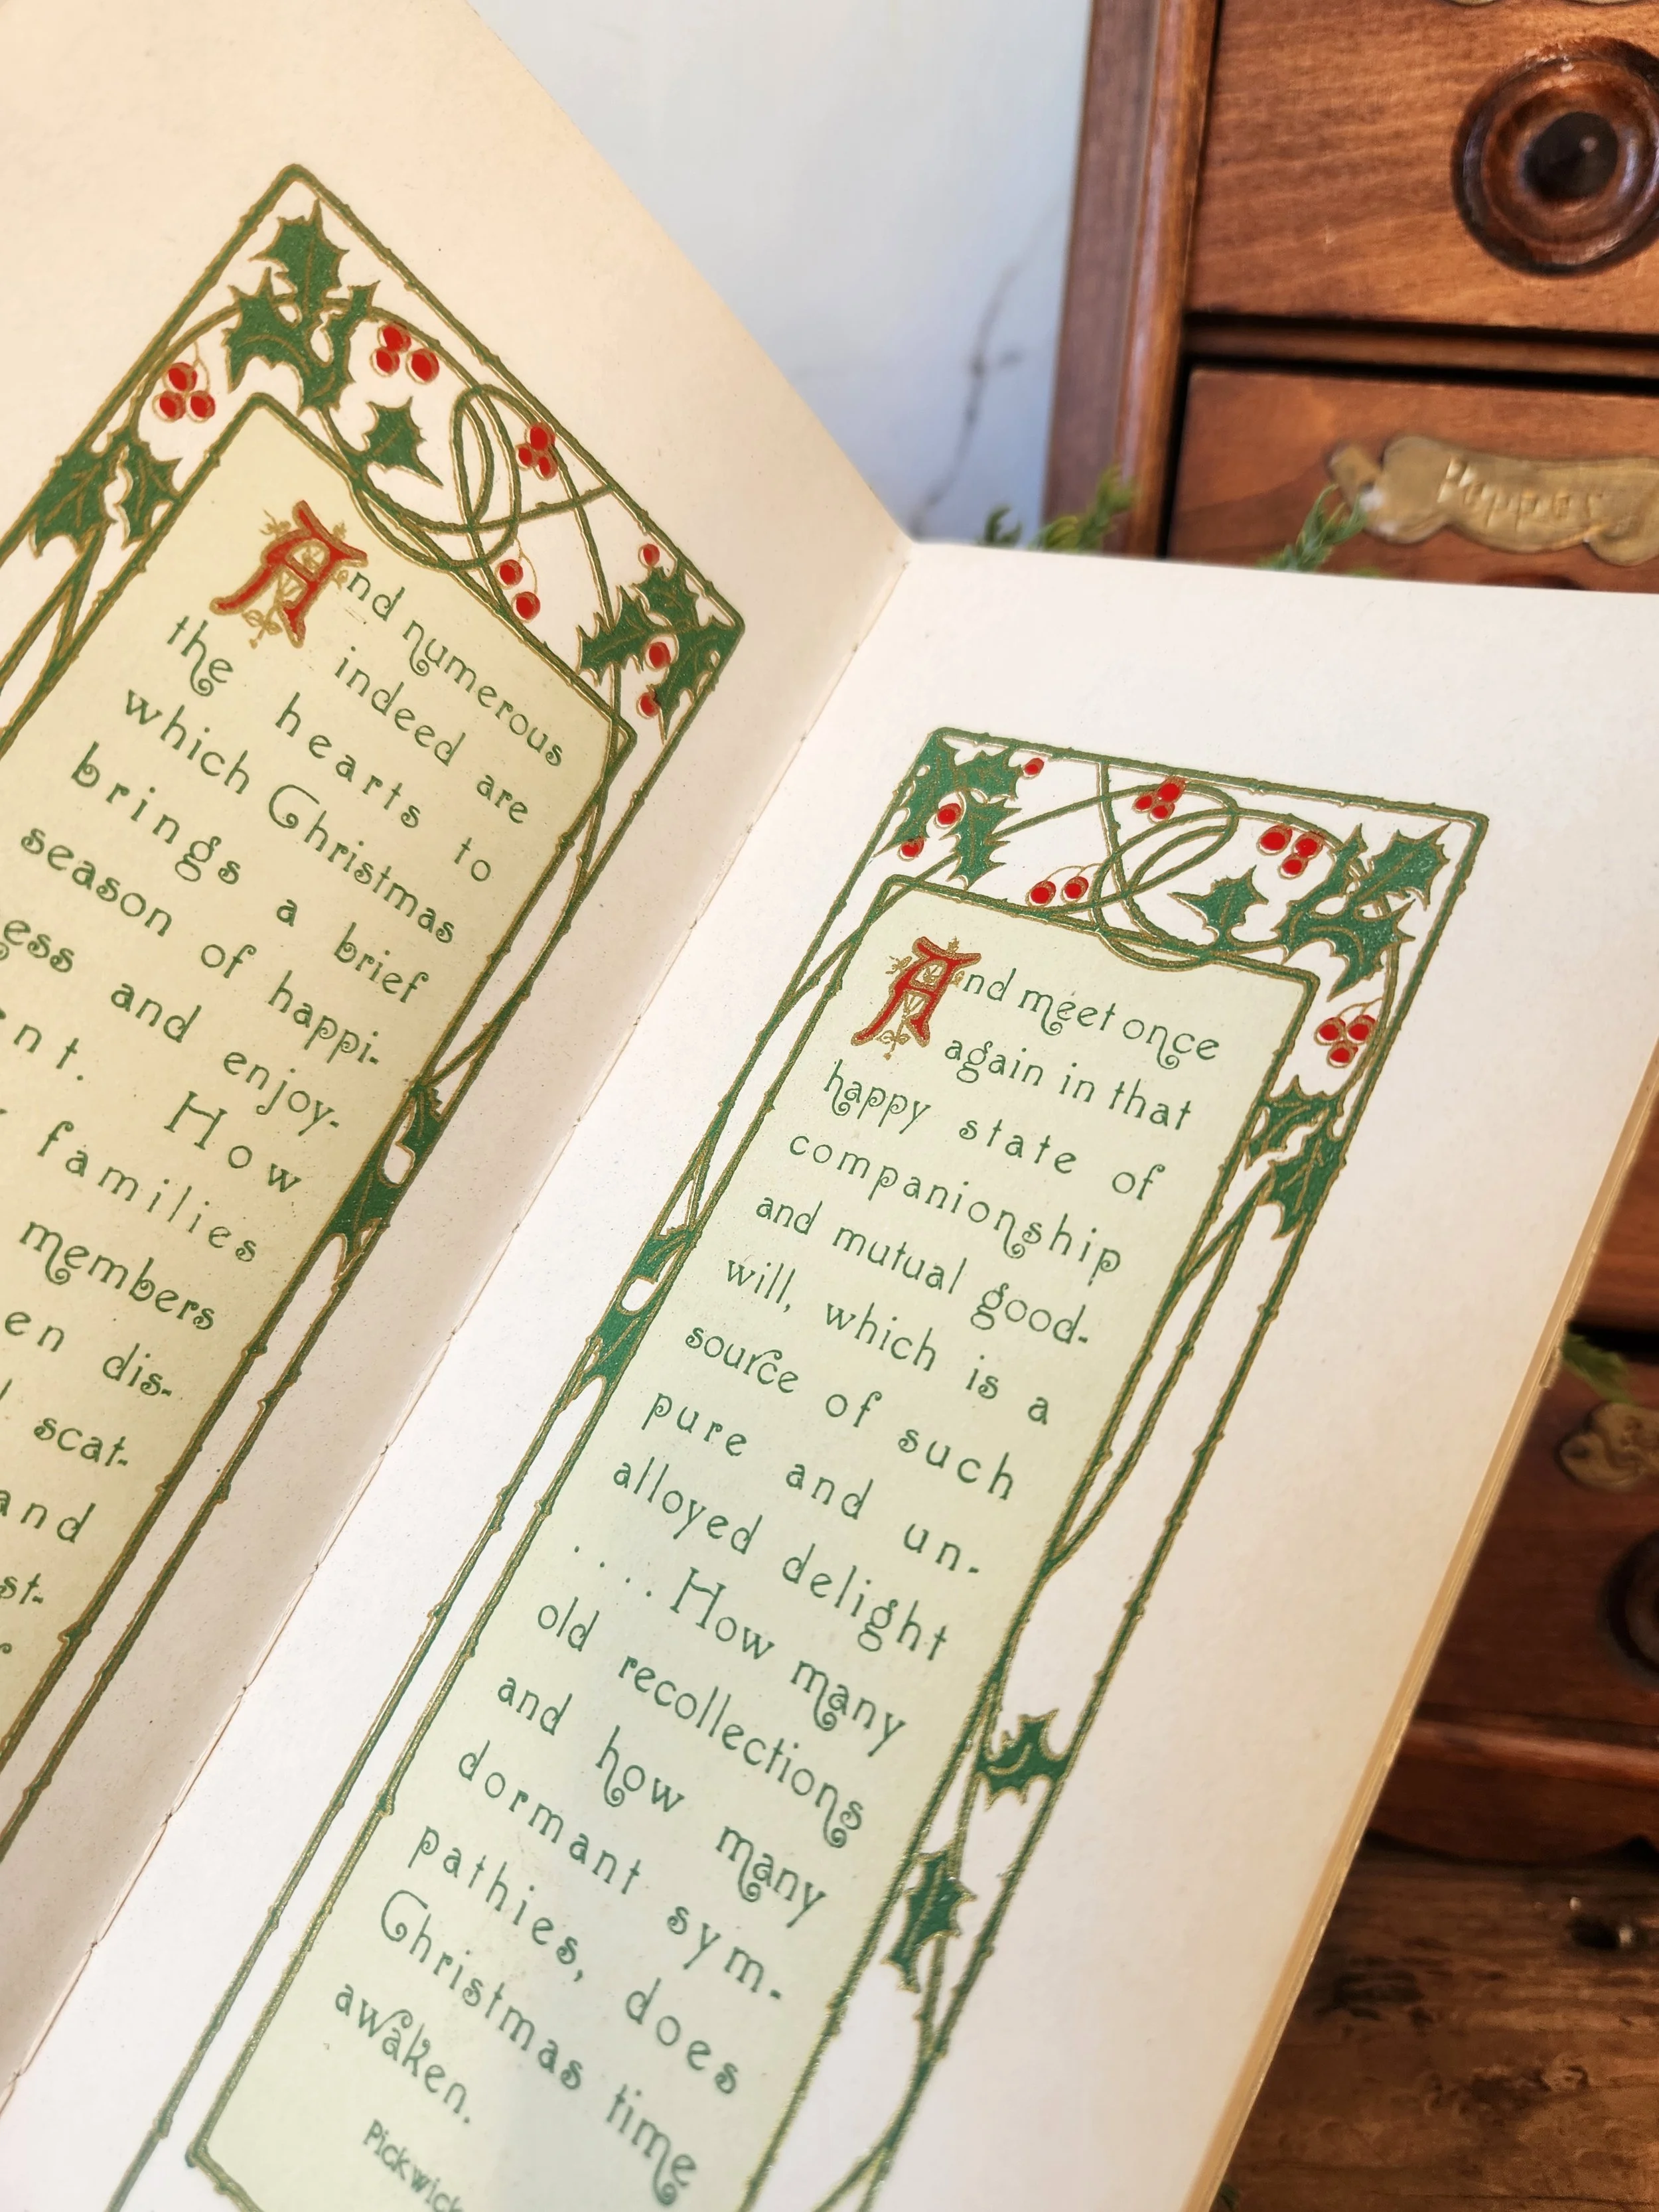 And numerous
indeed are
the hearts to
which Christmas
brings a brief
season of happi-
ess and enjoy-
nt. How
families
members
en dis-
scat-
and
st-
And meet once
again in that
happy state of
companionship
and mutual good-
will, which is a
source of such
pure and un-
alloyed delight
. . . . How many
old recollections
and how many
dormant sym-
pathies, does
Christmas time
awaken.
Pickwick
Pepper